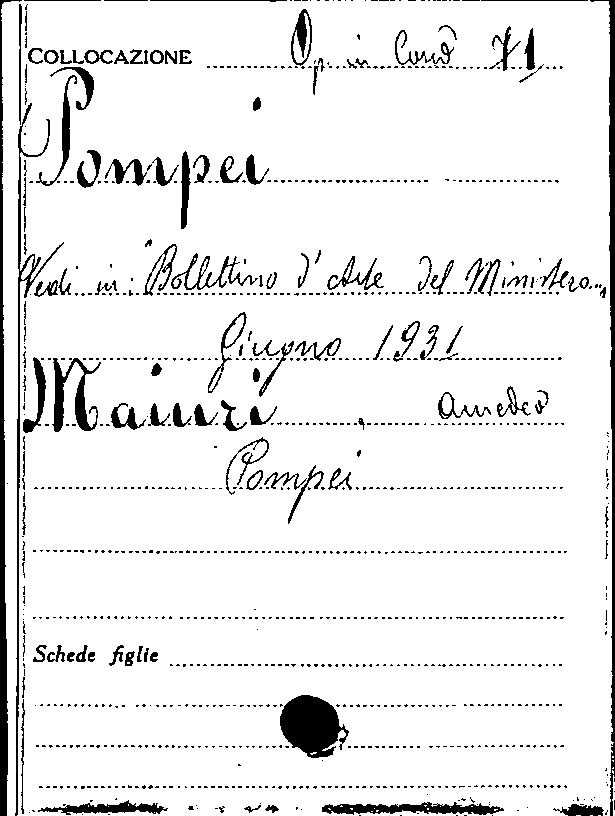 COLLOCAZIONE Op. in Cons 71
Pompei
Vedi in: "Bollettino d'Arte del Ministero..„
Giugno 1931
Maiuri, Amedeo
Pompei
Schede figlie